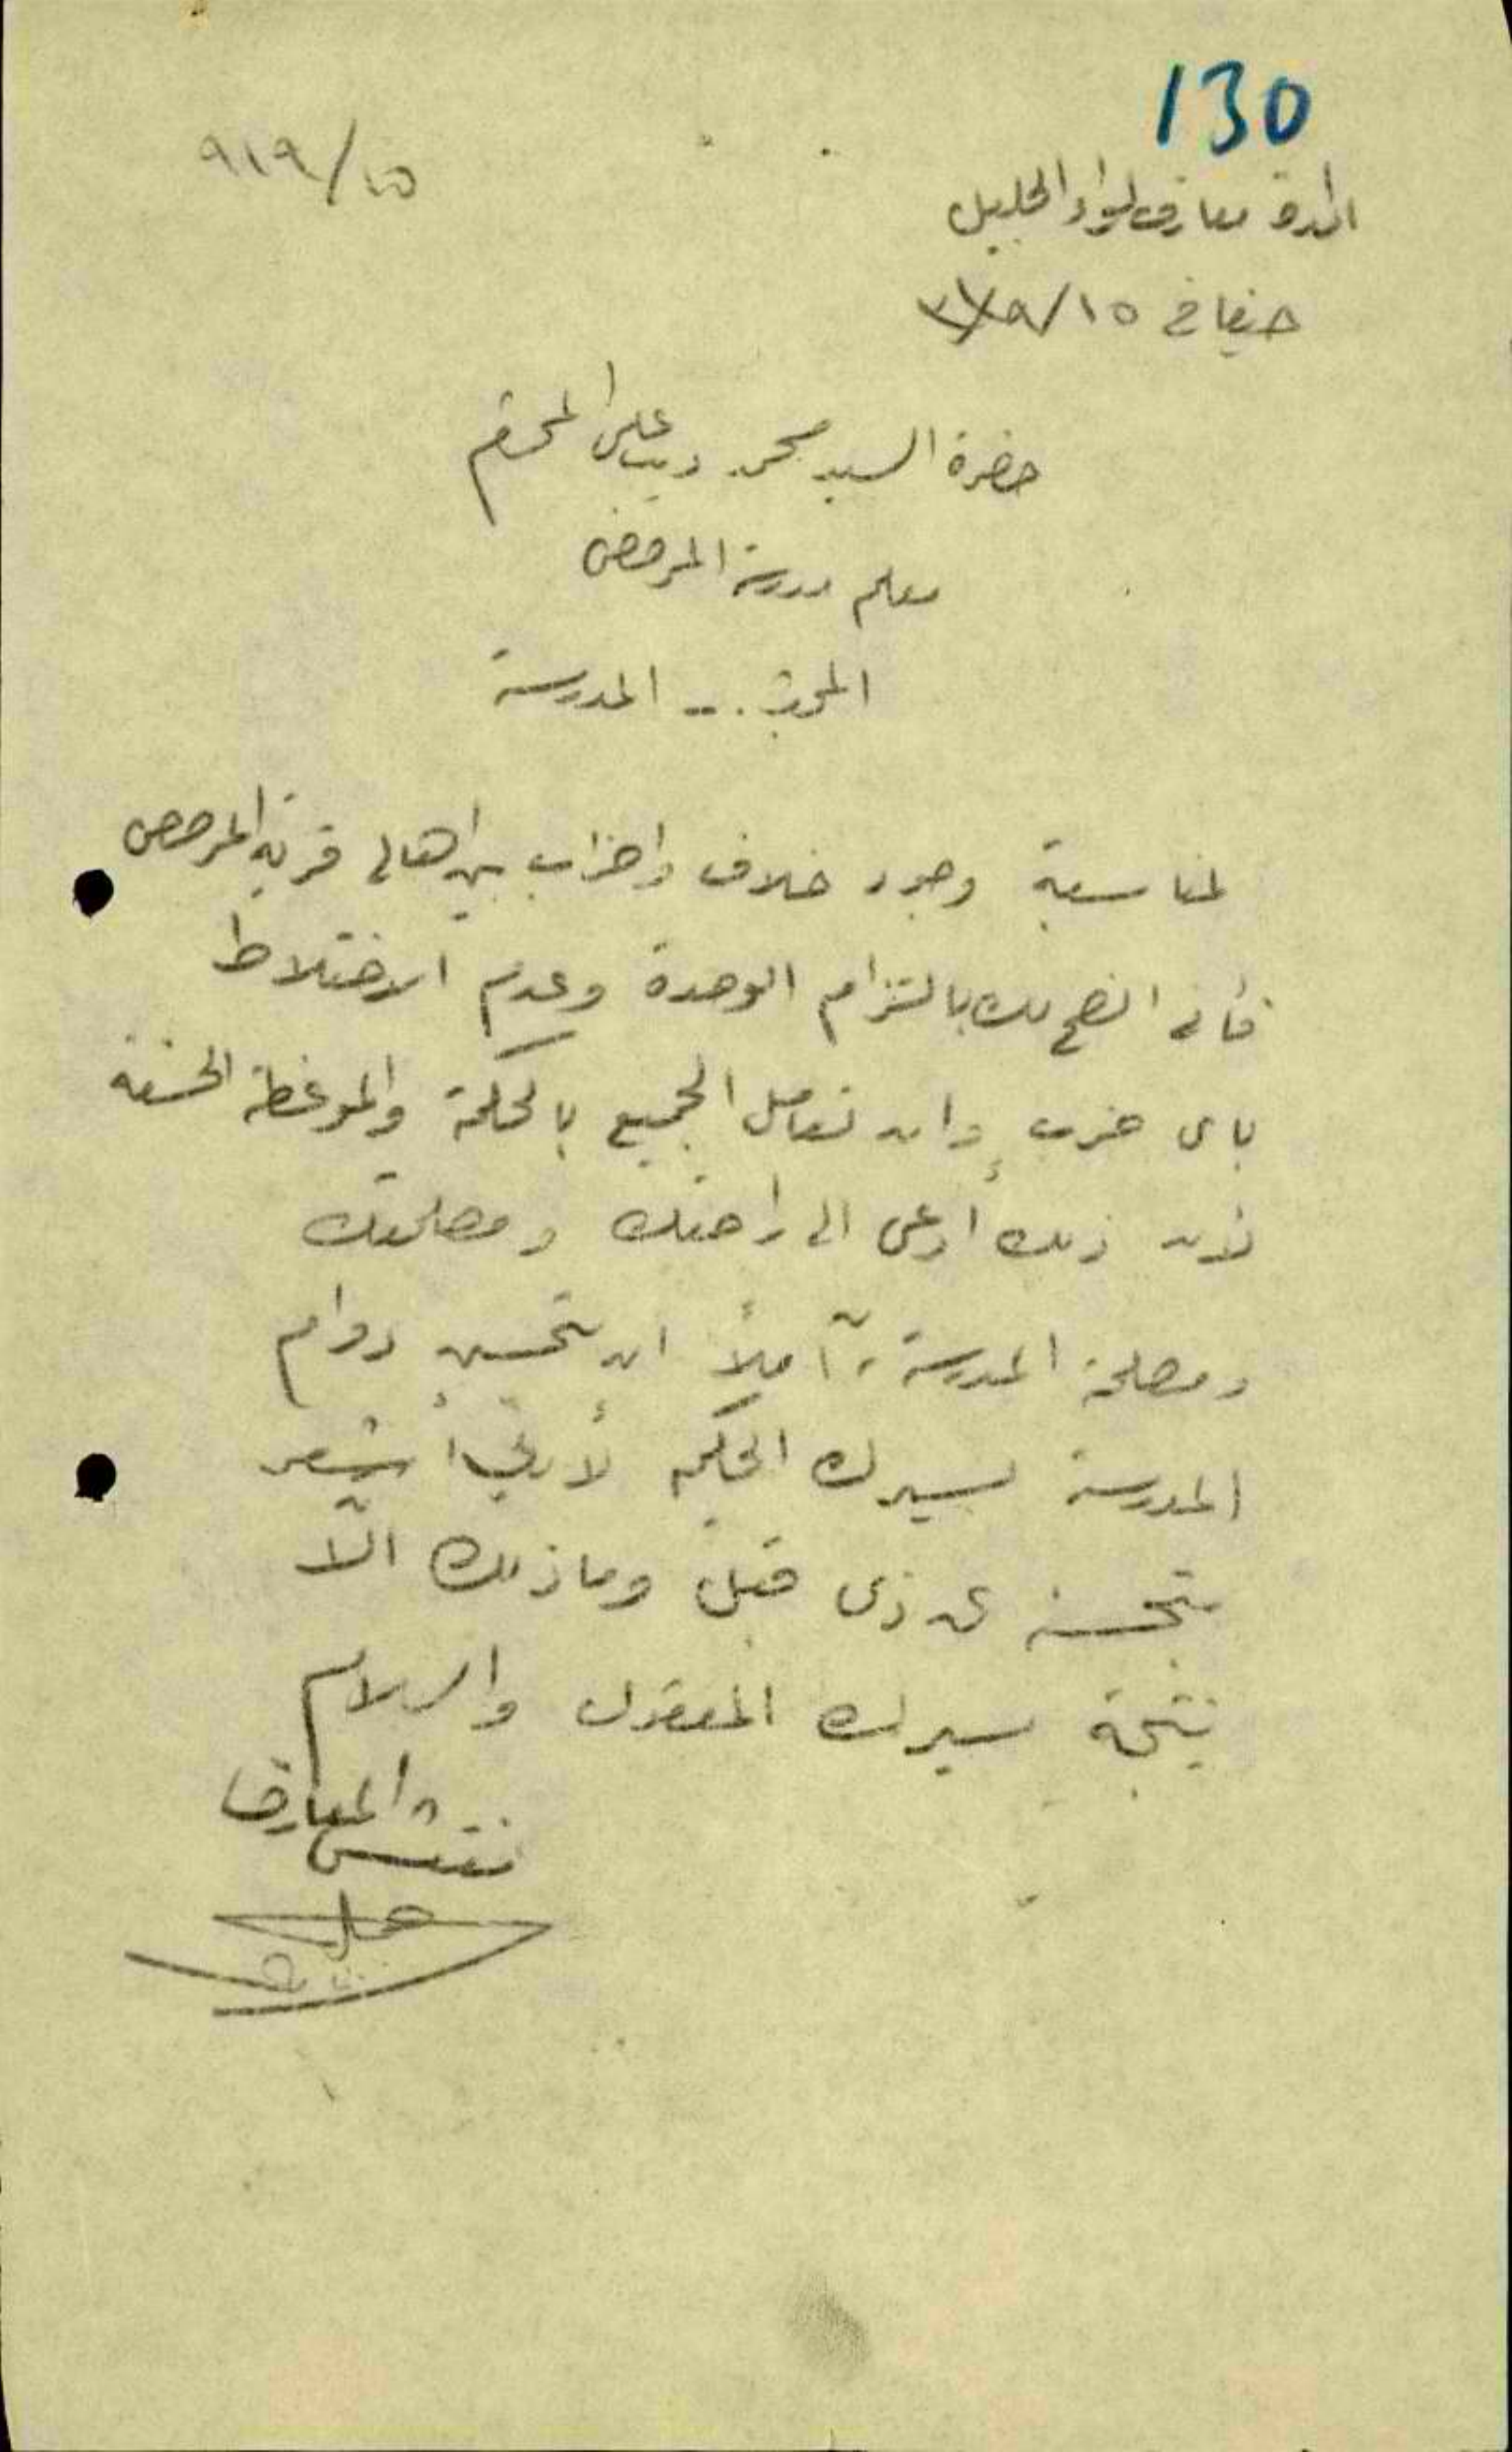 130
٩١٩/١٥
ادارة معارف لواء الجليل
حيفا في ١٥/٩/
حضرة السيد محمد ديب علي المحترم
معلم مدرسة المرصص
المدرسة
لمناسبة وجود خلاف واحزاب بين اهالي قرية المرصص
فأني انصح لك بالتزام الوحدة وعدم الاختلاط
باي حزب وان تعامل الجميع بالحكمة والموعظة الحسنة
لأن ذلك أدعى الى راحتك ومصلحتك
ومصلحة المدرسة، آملاً ان يتحسن دوام
المدرسة بسيرك الحكيم لأنني أشعر
بتحسنه عن ذي قبل وما ذلك الّا
نتيجة سيرك المعقول والسلام
مفتش المعارف